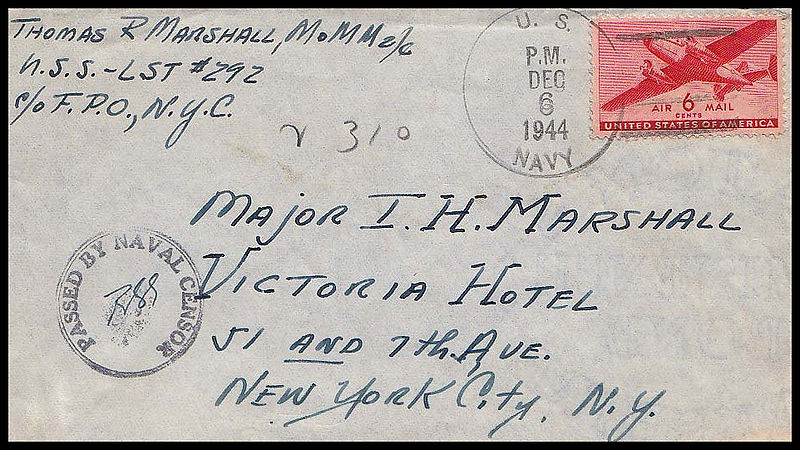 Thomas R Marshall, MoMM2/c
U.S.S.-LST #292
c/o F.P.O., N.Y.C.
310
U. S.
P.M.
DEC
6
1944
NAVY
AIR 6 MAIL
CENTS
UNITED STATES OF AMERICA
Major I. H. Marshall
Victoria Hotel
51 and 7th. Ave.
New York City, N.Y.
PASSED BY NAVAL CENSOR